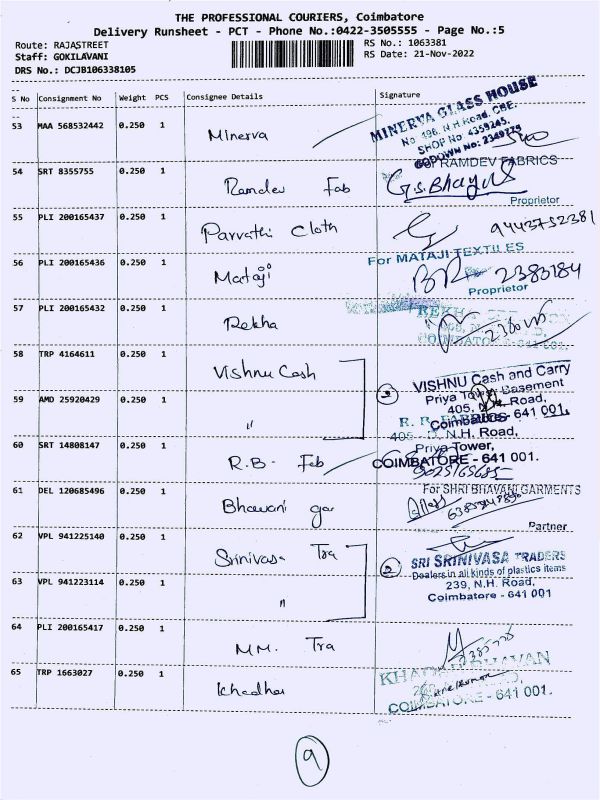 THE PROFESSIONAL COURIERS, Coimbatore
Delivery Runsheet - PCT - Phone No.:0422-3505555 - Page No.:5
Route: RAJASTREET RS No.: 1063381
Staff: GOKILAVANI RS Date: 21-Nov-2022
DRS No.: DCJB106338105
S No Consignment No Weight PCS Consignee Details Signature
53 MAA 568532442 0.250 1 Minerva
MINERVA GLASS HOUSE
No 196, N.H.Road, CBE.
SHOP No 4359245.
GODOWN No: 2349775
54 SRT 8355755 0.250 1 Ramdev Fab
For RAMDEV FABRICS
G.S.Bhayul
Proprietor
55 PLI 200165437 0.250 1 Parvathi Cloth
9443752381
56 PLI 200165436 0.250 1 Mataji
For MATAJI TEXTILES
2383184
Proprietor
57 PLI 200165432 0.250 1 Rekha
REKHA
58 TRP 4164611 0.250 1 Vishnu Cash
VISHNU Cash and Carry
Priya Tower Basement
405, N.H. Road,
Coimbatore - 641 001.
59 AMD 25920429 0.250 1 "
R. R. FABRICS
405 N.H. Road,
Priya Tower,
COIMBATORE - 641 001.
60 SRT 14808147 0.250 1 R.B. Fab
61 DEL 120685496 0.250 1 Bhavani gar
For SHRI BHAVANI GARMENTS
Partner
62 VPL 941225140 0.250 1 Srinivasa Tra
2 SRI SRINIVASA TRADERS
Dealers in all kinds of plastics items
239, N.H. Road,
Coimbatore - 641 001
63 VPL 941223114 0.250 1 "
64 PLI 200165417 0.250 1 M.M. Tra
65 TRP 1663027 0.250 1 Khadhar
BHAVAN
COIMBATORE - 641 001.
9